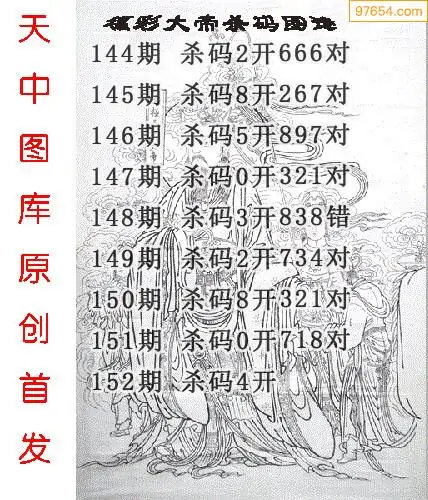 97654.com
福彩大帝杀码图迷
144期 杀码2开666对
145期 杀码8开267对
146期 杀码5开897对
147期 杀码0开321对
148期 杀码3开838错
149期 杀码2开734对
150期 杀码8开321对
151期 杀码0开718对
152期 杀码4开
天中图库原创首发